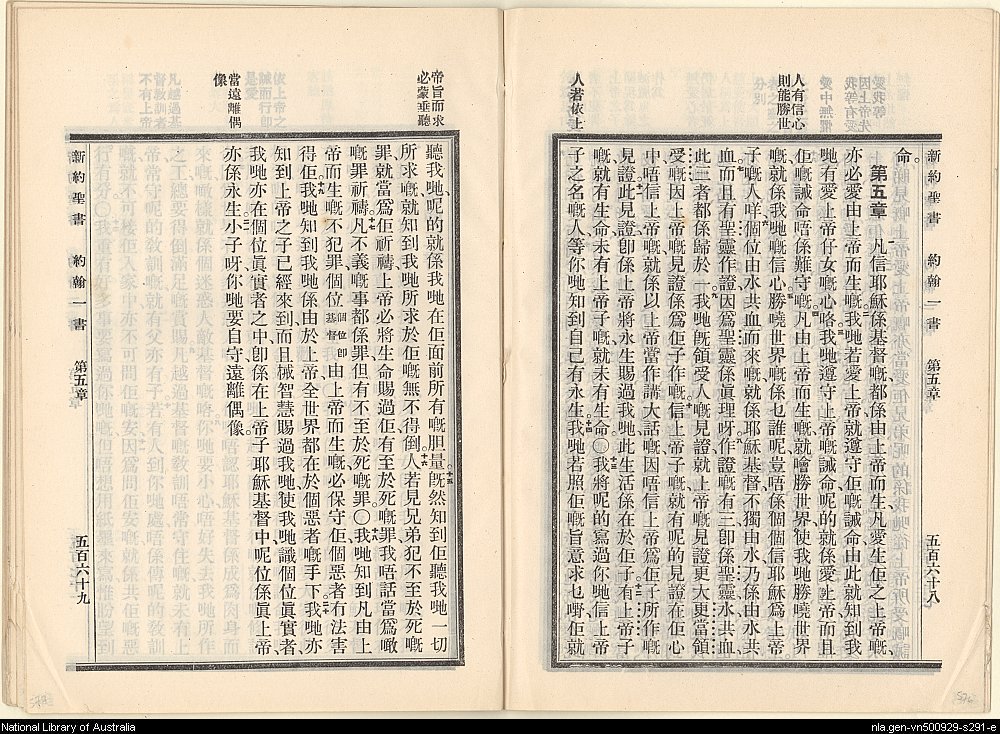 新約聖書 約翰一書 第五章 五百六十八
人有信心
則能勝世
人若依上
命。
第五章 凡信耶穌係基督嘅、都係由上帝而生、凡愛生佢之上帝嘅、
亦必愛由上帝而生嘅、我哋若愛上帝、就遵守佢嘅誡命、由此就知到我
哋有愛上帝仔女嘅心咯、我哋遵守上帝嘅誡命、呢的就係愛上帝、而且
佢嘅誡命唔係難守嘅、凡由上帝而生嘅、就噲勝世界、使我哋勝曉世界
嘅、就係我哋嘅信心、勝曉世界嘅、係乜誰呢、豈唔係個個信耶穌爲上帝
子嘅人咩、個位由水共血而來嘅、就係耶穌基督、不獨由水、乃係由水共
血、而且有聖靈作證、因爲聖靈係眞理呀、作證嘅有三、卽係聖靈、水、共血、
此三者都係歸於一、我哋旣領受人嘅見證、就上帝嘅見證更大、更當領
受嘅、因上帝嘅見證、係爲佢子作嘅、信上帝子嘅、就有呢的見證在佢心
中、唔信上帝嘅、就係以上帝當作講大話嘅、因唔信上帝爲佢子所作嘅
見證、此見證、卽係上帝將永生賜過我哋、此生活係在於佢子、有上帝子
嘅、就有生命、未有上帝子嘅、就未有生命、〇我將呢的寫過你哋信上帝
子之名嘅人、等你哋知到自己有永生、我哋若照佢嘅旨意求乜嘢、佢就
帝旨而求
必蒙垂聽
當遠離偶
像
聽我哋、呢的就係我哋在佢面前所有嘅胆量。旣然知到佢聽我哋一切
所求嘅、就知到我哋所求於佢嘅、無不得倒。人若見兄弟犯不至於死嘅
罪、就當爲佢祈禱、上帝必將生命賜過佢、有至於死嘅罪、我唔話當爲噉
嘅罪祈禱、凡不義嘅事都係罪、但有不至於死嘅罪。〇我哋知到凡由上
帝而生嘅、不犯罪、個位個位卽基督由上帝而生嘅、必保守佢、個惡者有法害
得佢、我哋知到我哋係由於上帝、全世界都在於個惡者嘅手下、我哋亦
知到上帝之子已經來到、而且械智慧賜過我哋、使我哋識個位眞實者、
我哋亦在個位眞實者之中、卽係在上帝子耶穌基督中、呢位係眞上帝、
亦係永生、小子呀、你哋要自守遠離偶像。
新約聖書 約翰一書 第五章 五百六十九
National Library of Australia
nla.gen-vn500929-s291-e